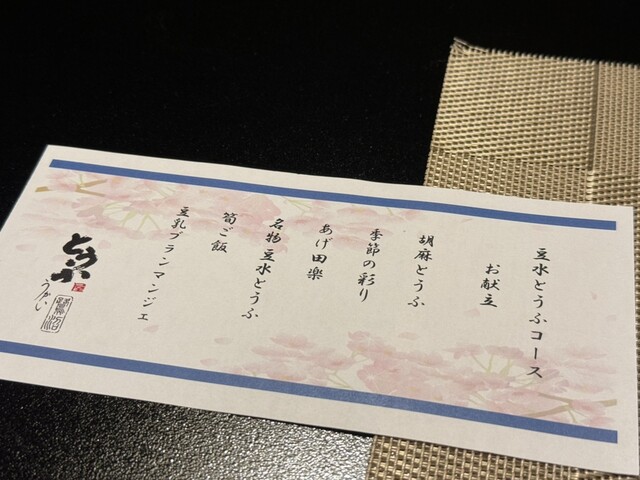 豆水とうふコース
お献立
胡麻とうふ
季節の彩り
あげ田楽
名物豆水とうふ
筍ご飯
豆乳ブランマンジェ
とうふ
屋
うかい